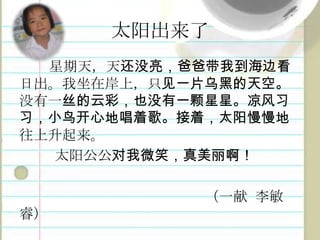 太阳出来了
星期天，天还没亮，爸爸带我到海边看
日出。我坐在岸上，只见一片乌黑的天空。
没有一丝的云彩，也没有一颗星星。凉风习
习，小鸟开心地唱着歌。接着，太阳慢慢地
往上升起来。
太阳公公对我微笑，真美丽啊！
（一献 李敏
睿）